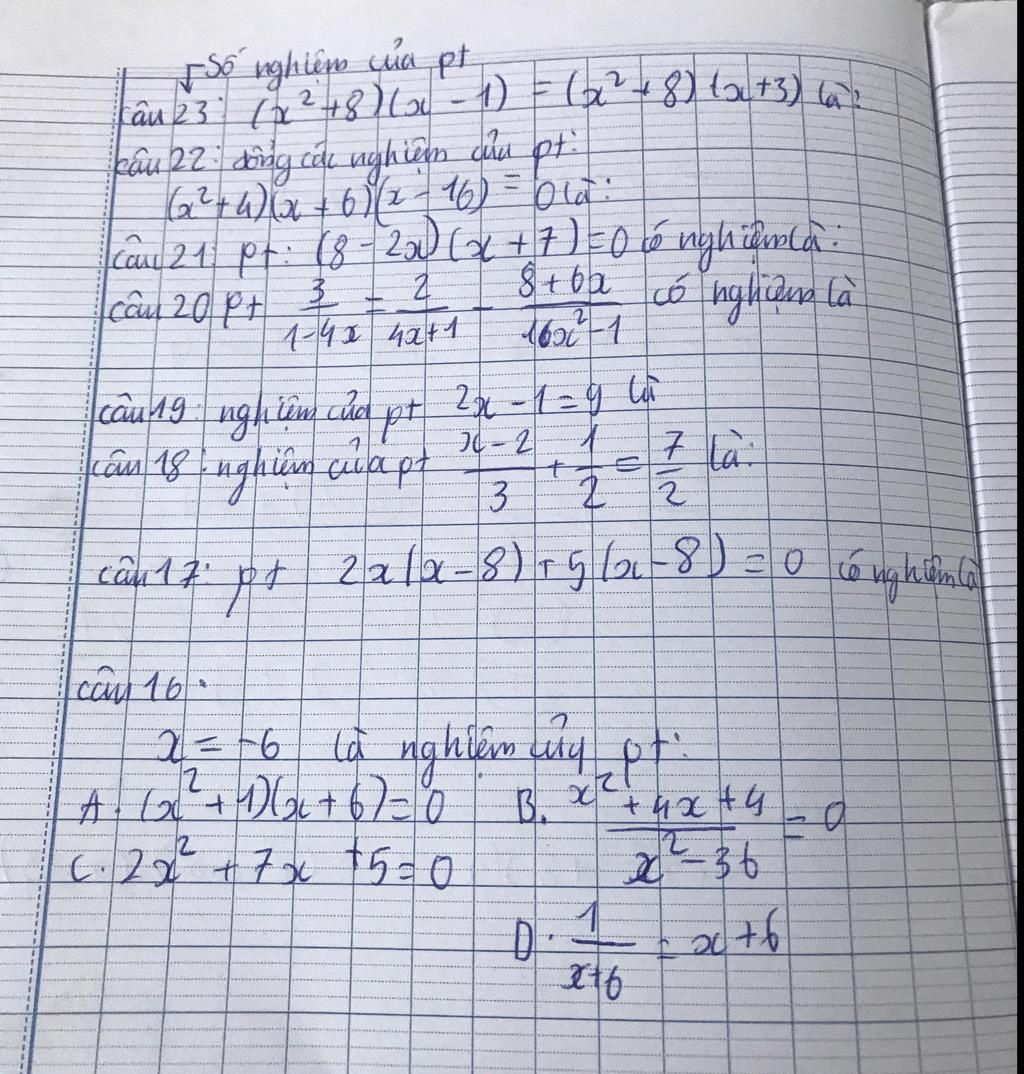 Số nghiệm của pt
Câu 23: (x² + 8)(x - 1) = (x² + 8)(x + 3) là:
Câu 22: tổng các nghiệm của pt:
(x² + 4)(x + 6)(x - 16) = 0 là:
Câu 21: pt: (8 - 2x)(x + 7) = 0 có nghiệm là:
Câu 20 pt 3/(1-4x) = 2/(4x+1) - (8+6x)/(16x²-1) có nghiệm là
câu 19: nghiệm của pt 2x - 1 = 9 là
câu 18: nghiệm của pt (x-2)/3 + 1/2 = 7/2 là:
câu 17: pt 2x(x - 8) + 5(x - 8) = 0 có nghiệm là
câu 16:
x = -6 là nghiệm của pt:
A. (x² + 1)(x + 6) = 0 B. (x² + 4x + 4)/(x² - 36) = 0
C. 2x² + 7x + 5 = 0
D. 1/(x+6) = x + 6